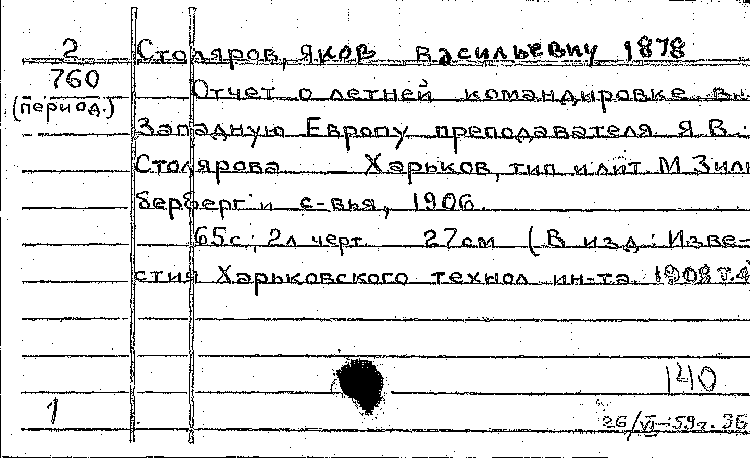 2
760
(период.)
Столяров, Яков Васильевич 1878
Отчет о летней командировке в
Западную Европу преподавателя Я В.
Столярова Харьков, тип и лит. М Зиль
берберг и с-вья, 1906.
65с.; 2л черт. 27см (В изд.: Изве-
стия Харьковского технол ин-та. 1908 т.4
140
1
26/VI-59г. ЗБ